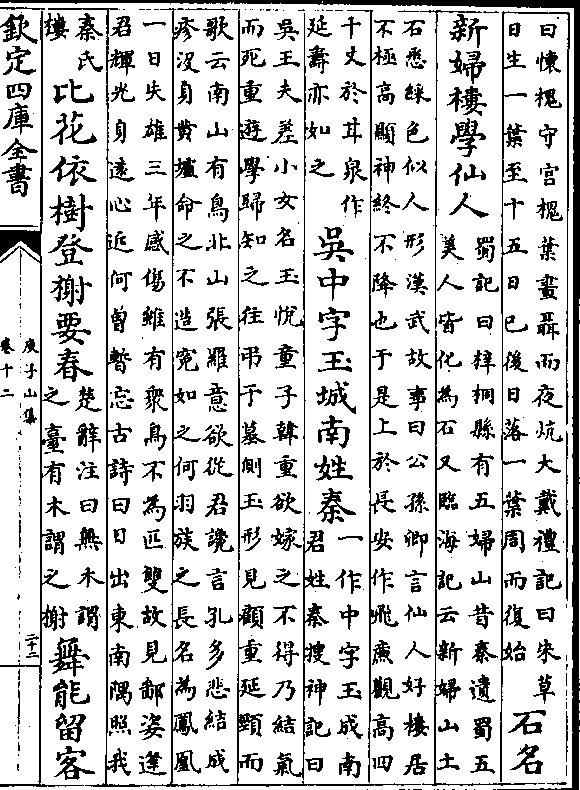 曰懷槐守宮槐葉晝聶而夜炕大戴禮記曰朱草
日生一葉至十五日已後日落一葉周而復始
石名
新婦樓學仙人
蜀記曰梓桐縣有五婦山昔秦遺蜀五
美人皆化為石又臨海記云新婦山土
石悉綵色似人形漢武故事曰公孫卿言仙人好樓居
不極高顯神終不降也于是上於長安作飛廉觀高四
十丈於甘泉作
延壽亦如之
吳中字玉城南姓秦
一作中字玉成南
君姓秦搜神記曰
吳王夫差小女名玉悅童子韓重欲嫁之不得乃結氣
而死重遊學歸知之往弔于墓側玉形見顧重延頸而
歌云南山有鳥北山張羅意欲從君讒言孔多悲結成
疹沒身黃壚命之不造寃如之何羽族之長名為鳳凰
一日失雄三年感傷雖有衆鳥不為匹雙故見鄙姿逢
君輝光身遠心近何曾暫忘古詩曰日出東南隅照我
秦氏
樓
比花依樹登榭要春
楚辭注曰無木謂
之臺有木謂之榭
舞能留客
欽定四庫全書
庾子山集
卷十二
二十二